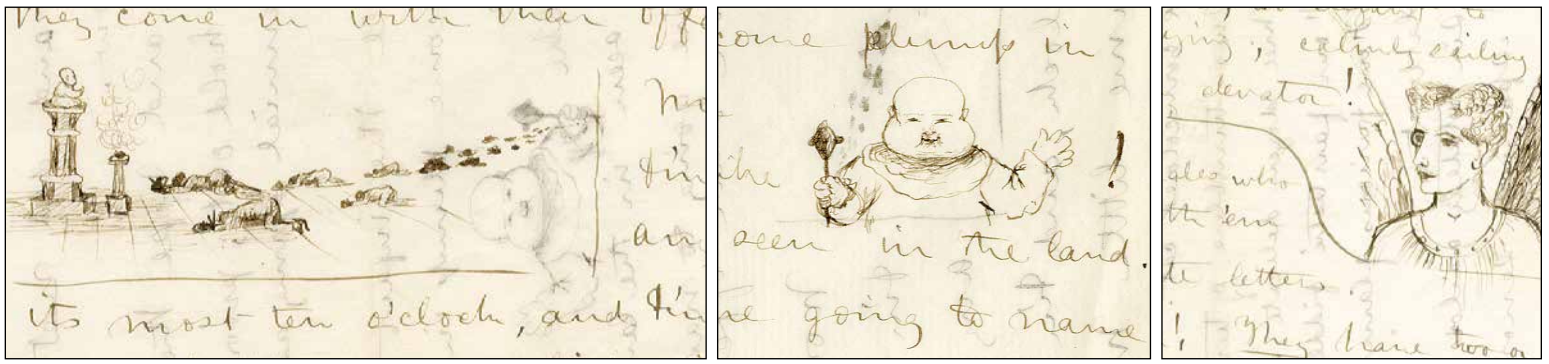 they come in with their offe
its most ten o'clock, and I'm
come plump in
the
seen in the land.
going to name
ying, calmly sailing
elevator!
gles who
th 'em
te letters.
! They have two o